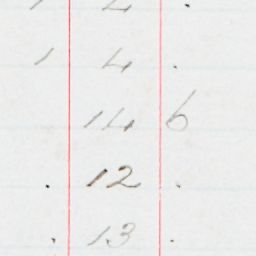 1 2 .
1 4 .
14 6
. 12 .
. 13 .